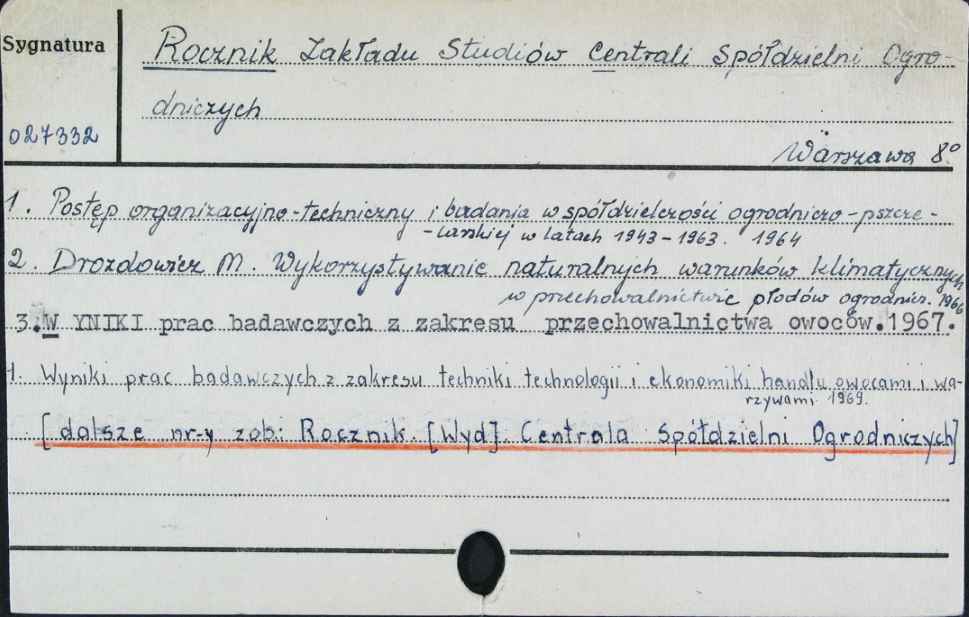 Sygnatura
Rocznik Zakładu Studiów Centrali Spółdzielni Ogro-
dniczych
027332
Warszawa 8°
1. Postęp organizacyjno-techniczny i badania w spółdzielczości ogrodniczo-pszcze-
-larskiej w latach 1943-1963. 1964
2. Drozdowicz M. Wykorzystywanie naturalnych warunków klimatycznych
w przechowalnictwie płodów ogrodnicz. 1966
3. W YNIKI prac badawczych z zakresu przechowalnictwa owoców.1967.
4. Wyniki prac badawczych z zakresu techniki technologii i ekonomiki handlu owocami i wa-
rzywami 1969.
[dalsze nr-y zob: Rocznik. [Wyd]. Centrala Spółdzielni Ogrodniczych]